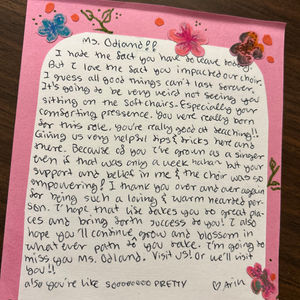 Ms. Odland!!
I hate the fact you have to leave today!
But I love the fact you impacted our choir.
I guess all good things can't last forever.
It's going to be very weird not seeing you
sitting on the soft chairs. Especially your
comforting pressence. You were really born
for this role. you're really good at teaching!!
Giving us very helpful tips & tricks here and
there. Because of you I've grown as a singer
even if that was only a week haha. but your
support and belief in me & the choir was so
empowering! I thank you over and over again
for being such a loving & warm hearted per-
son. I hope that life takes you to great pla-
ces and bring forth success to you! I also
hope you'll continue grow and blossom in
whatever path to you take. I'm going to
miss you Ms. Odland. Visit us! Or we'll visit
you!!
also you're like soooooooo PRETTY